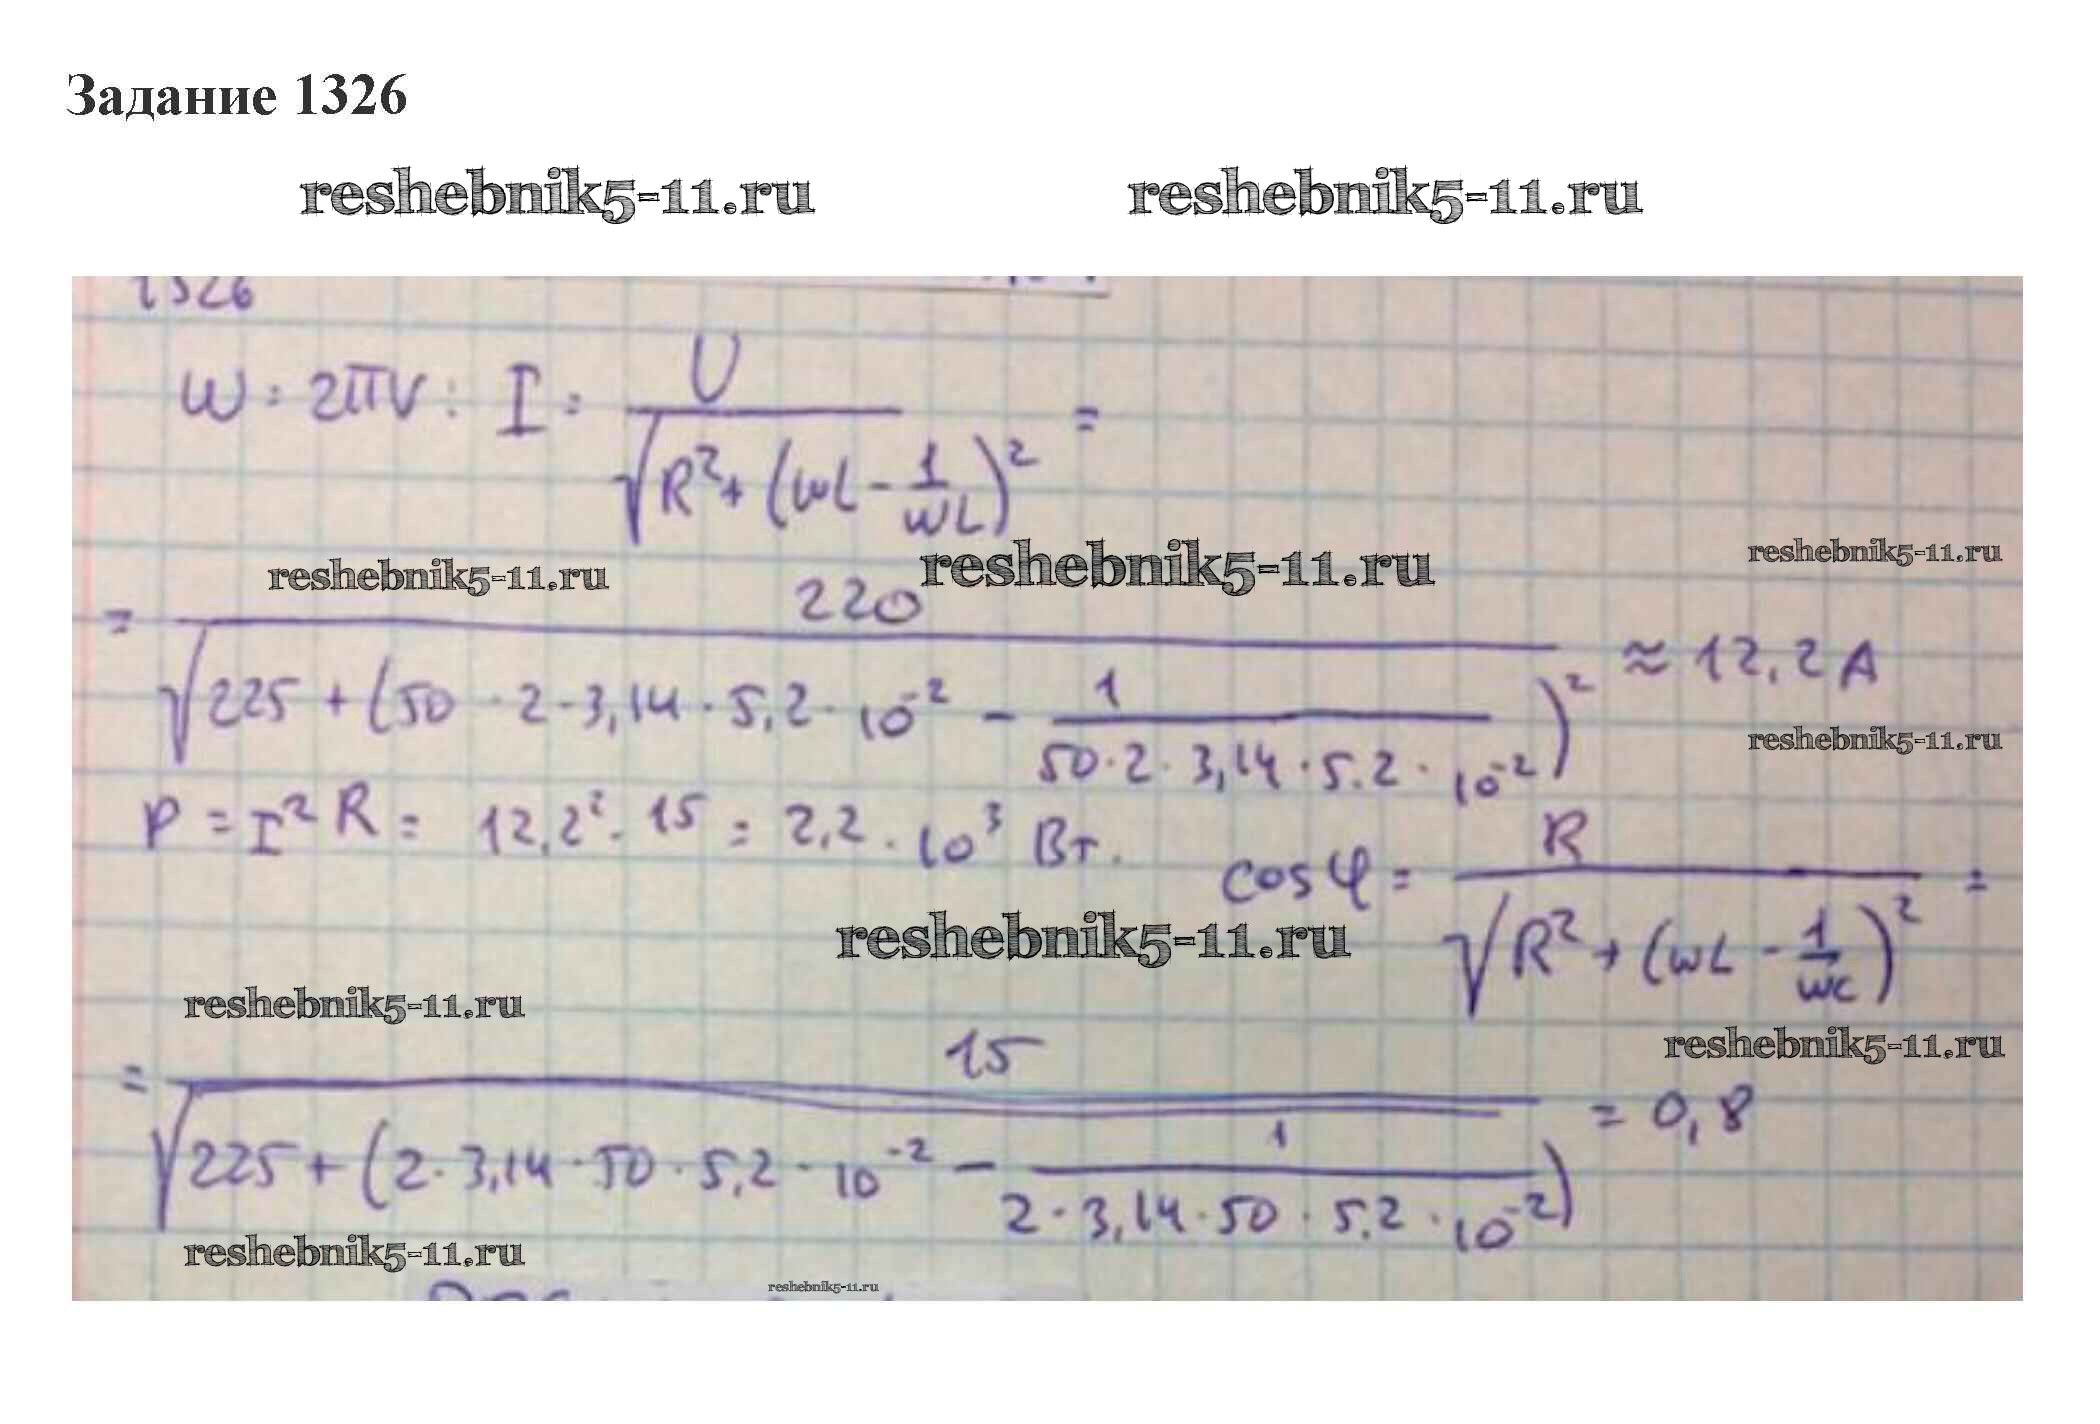 Задание 1326
reshebnik5-11.ru reshebnik5-11.ru
1326
W = 2πV : I = U / √R² + (WL - 1/WL)² =
reshebnik5-11.ru reshebnik5-11.ru reshebnik5-11.ru
= 220 / √225 + (50 · 2 · 3,14 · 5,2 · 10⁻² - 1 / 50 · 2 · 3,14 · 5.2 · 10⁻²)² ≈ 12,2 A
reshebnik5-11.ru
P = I² R = 12,2² · 15 = 2,2 · 10³ Вт.
cos φ = R / √R² + (WL - 1/WC)² =
reshebnik5-11.ru
reshebnik5-11.ru reshebnik5-11.ru
= 15 / √225 + (2 · 3,14 · 50 · 5,2 · 10⁻² - 1 / 2 · 3,14 · 50 · 5,2 · 10⁻²) = 0,8
reshebnik5-11.ru
reshebnik5-11.ru